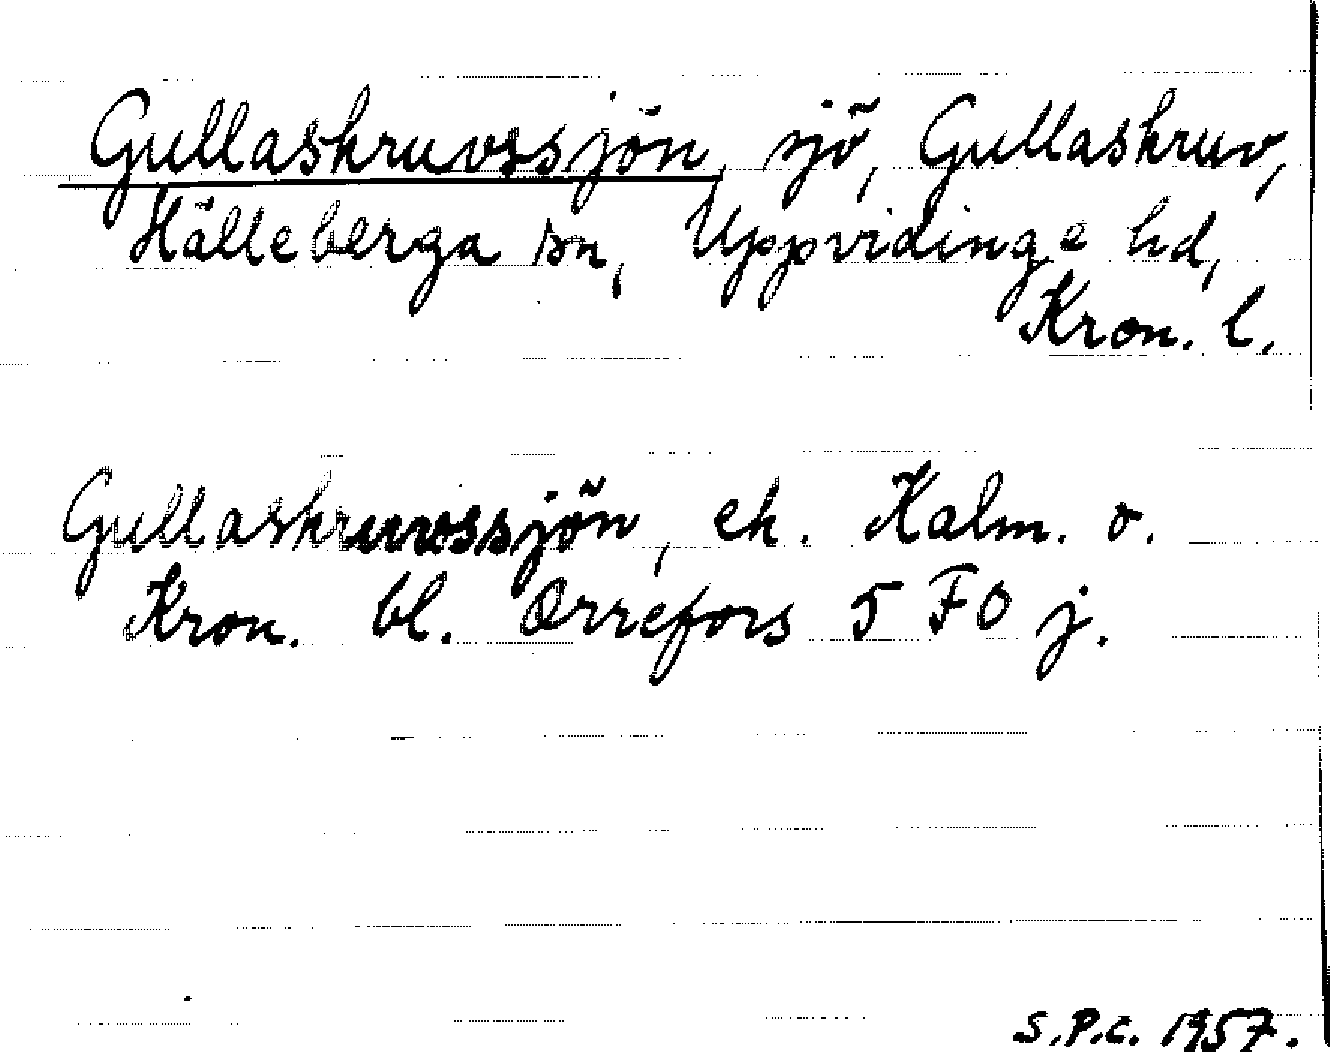 Gullaskruvssjön, sjö, Gullaskruv,
Hälleberga sn, Uppvidinge hd,
Kron. l.
Gullaskruvssjön, ek. Kalm. o.
Kron. bl. Orrefors 5 F 0 j.
S.P.C. 1957.